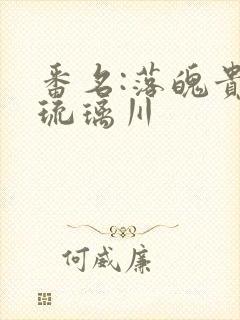 番名:落魄貴
琉璃川
何威廉